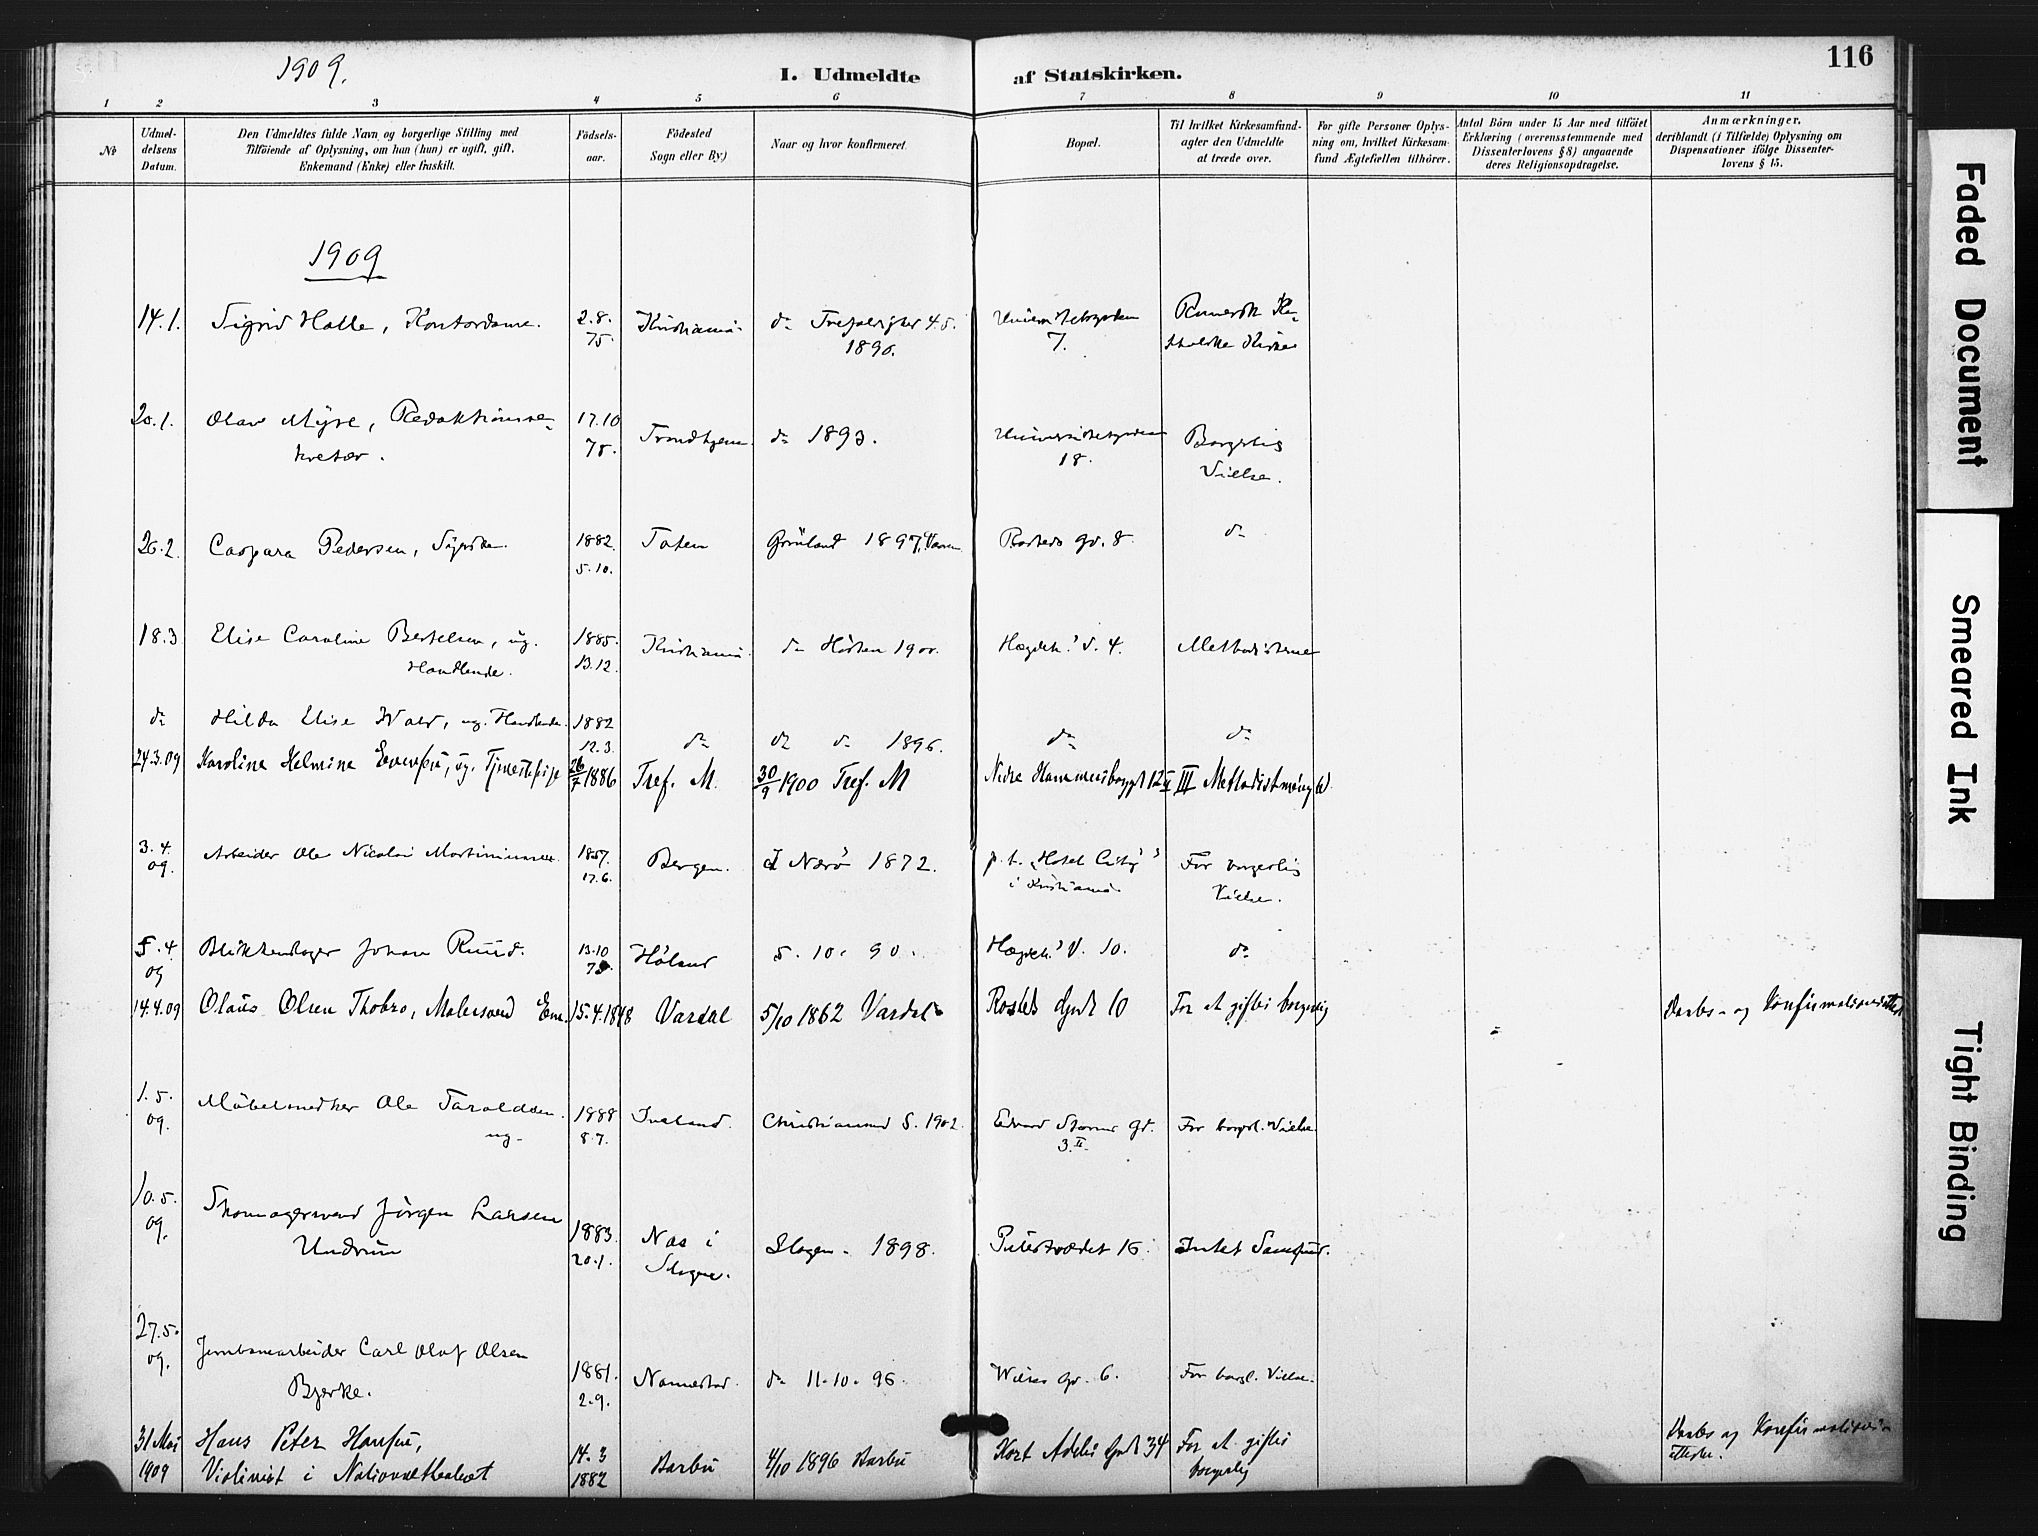 116
1909.
I. Udmeldte af Statskirken.
1 2 3 4 5 6 7 8 9 10 11
№
Udmel-
delsens
Datum.
Den Udmeldtes fulde Navn og borgerlige Stilling med
Tilföiende af Oplysning, om han (hun) er ugift, gift,
Enkemand (Enke) eller fraskilt.
Födsels-
aar.
Födested
Sogn eller By.)
Naar og hvor konfirmeret.
Bopæl.
Til hvilket Kirkesamfund-
agter den Udmeldte
at træde over.
For gifte Personer Oplys-
ning om, hvilket Kirkesam-
fund Ægtefællen tilhörer.
Antal Börn under 15 Aar med tilföiet
Erklæring (overensstemmende med
Dissenterlovens § 8) angaaende
deres Religionsopdragelse.
Anmærkninger,
deriblandt (i Tilfælde) Oplysning om
Dispensationer ifölge Dissenter-
lovens § 15.
1909
14.1. Sigrid Holle, Kontordame. 2.8. Kristiania 4.5.
75. 1890. 7. Kirke
20.1. Olav Myre, Redaktionsse- 17.10 Trondhjem do 1893. Universitetsgaden Borgerlig
kretær. 78. 18. Vielse.
26.2. Caspara Pedersen, Syerske. 1882. Toten Grönland 1897, Vaaren Rosteds gd. 8. do
5.10.
18.3 Elise Caroline Bertelsen, ug. 1885. Kristiania. do Hösten 1900. Hægdeh.' v. 4. Methodisterne
Handlende. 13.12.
do Hilda Elise Wold, ug. Handlende. 1882
12.3. do do do 1896. do do
24.3.09 Karoline Helmine Evensen, ug. Tjenestepige 26/7 1886 Tref. M. 30/9 1900 Tref. M Nedre 12 II III
3.4. Arbeider Ole Nicolai Martiniussen 1857. Bergen. I Nærö 1872. p.t. "Hotel City" For borgerlig
09. 17.6. i Kristiania Vielse.
5.4 Blikkenslager Johan Ruud. 13.10 Höland 5.10.90. Hægdeh.' V. 10. do
09
14.4.09 Olaus Olsen Thobro, Malersvend 15.4.1848 Vardal 5/10 1862 Vardal Rosteds Gade 10 For at giftes borgerlig Daabs- og Konfirmationsattest
1.5. Möbelsnedker Ole Taraldsen. 1888 Iveland. Christianssand S. 1902. Edvard Storms gd. For borgl. Vielse
09. ug. 8.7. 3.II
10.5. Skomagersvend Jörgen Larsen
09. Undrum 1883. Næs i Slagen. 1898. 16. Intet Samfund.
20.1. Slagen.
27.5. Jernbanearbeider Carl Olaf Olsen
09. Bjerke. 1881. Nannestad. do 11.10.96. gd. 6. For borgl. Vielse.
2.9.
31 Mai Hans Peter Hansen, 14.3 Barbu 4/10 1896 Barbu Kort Adelers Gade 34 For at giftes Daabs og Konfirmations
1909 Violinist i Nationaltheatret 1882 borgerlig attester.
Faded Document
Smeared Ink
Tight Binding